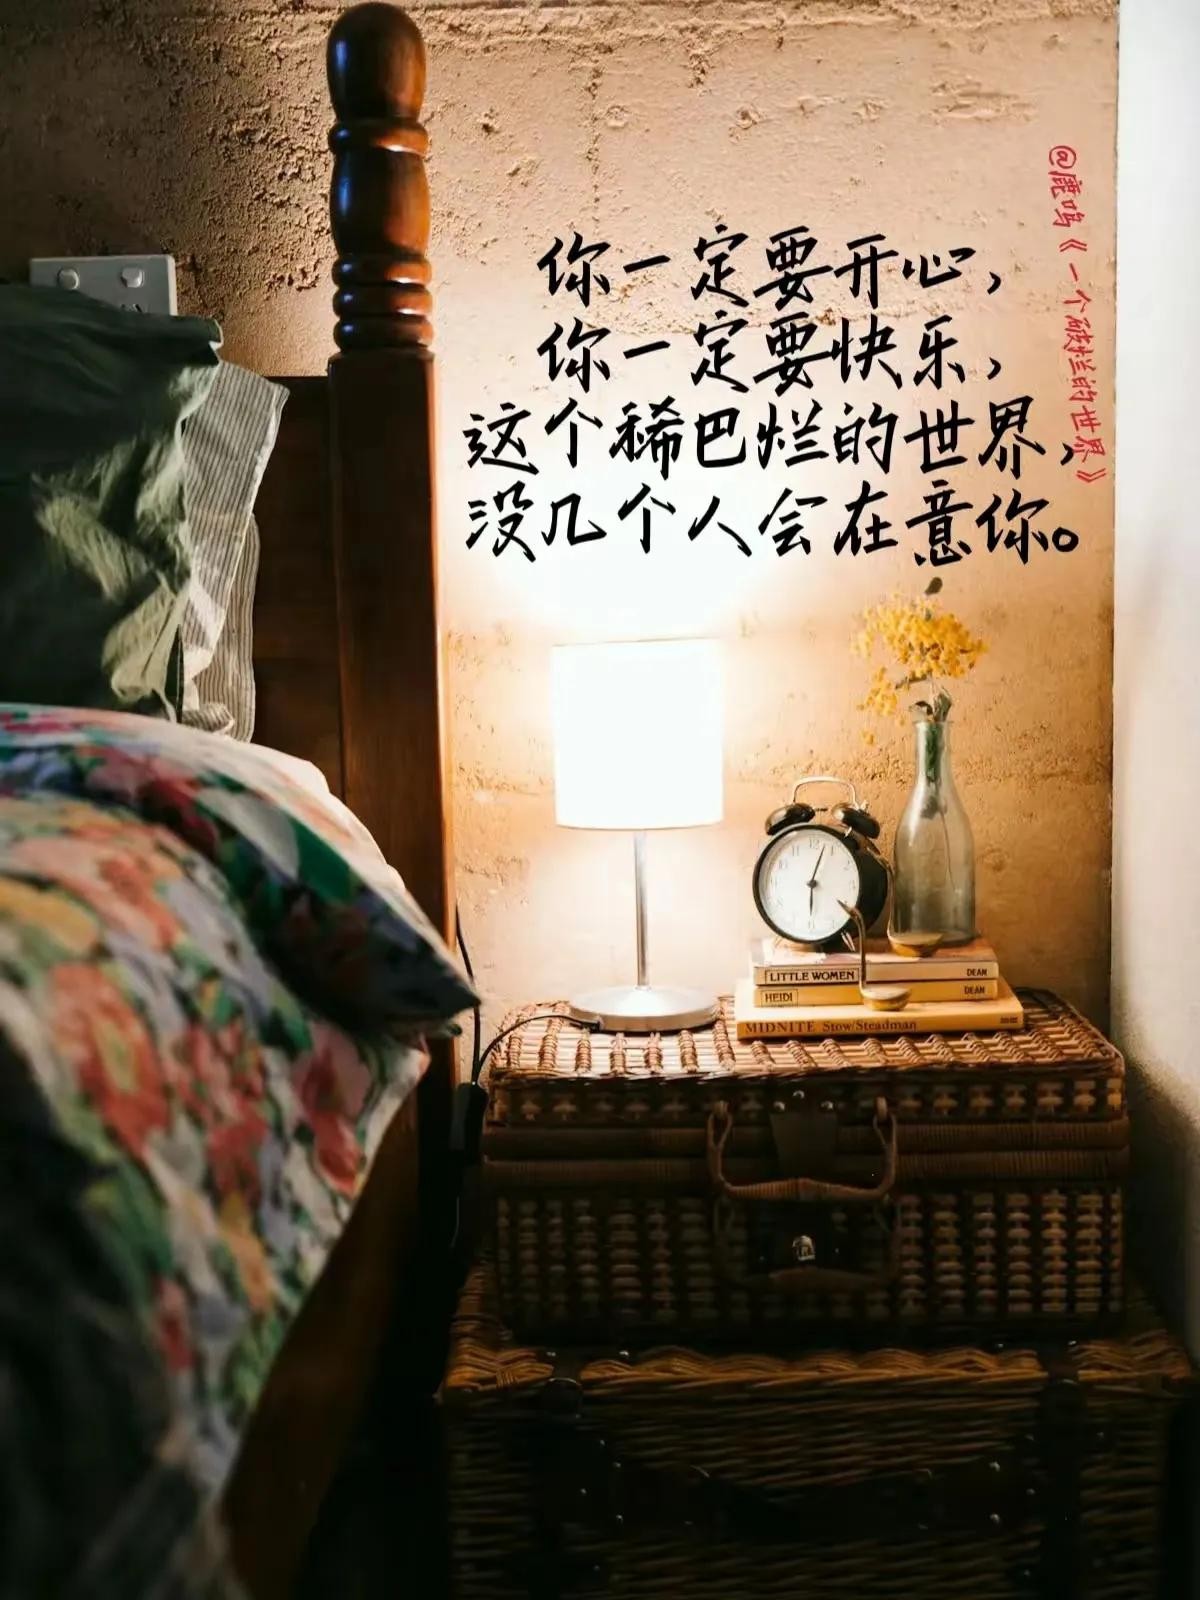 你一定要开心，
你一定要快乐，
这个稀巴烂的世界，
没几个人会在意你。
@鹿鸣《一个破烂的世界》
LITTLE WOMEN DEAN
HEIDI DEAN
MIDNITE Stow/Steadman